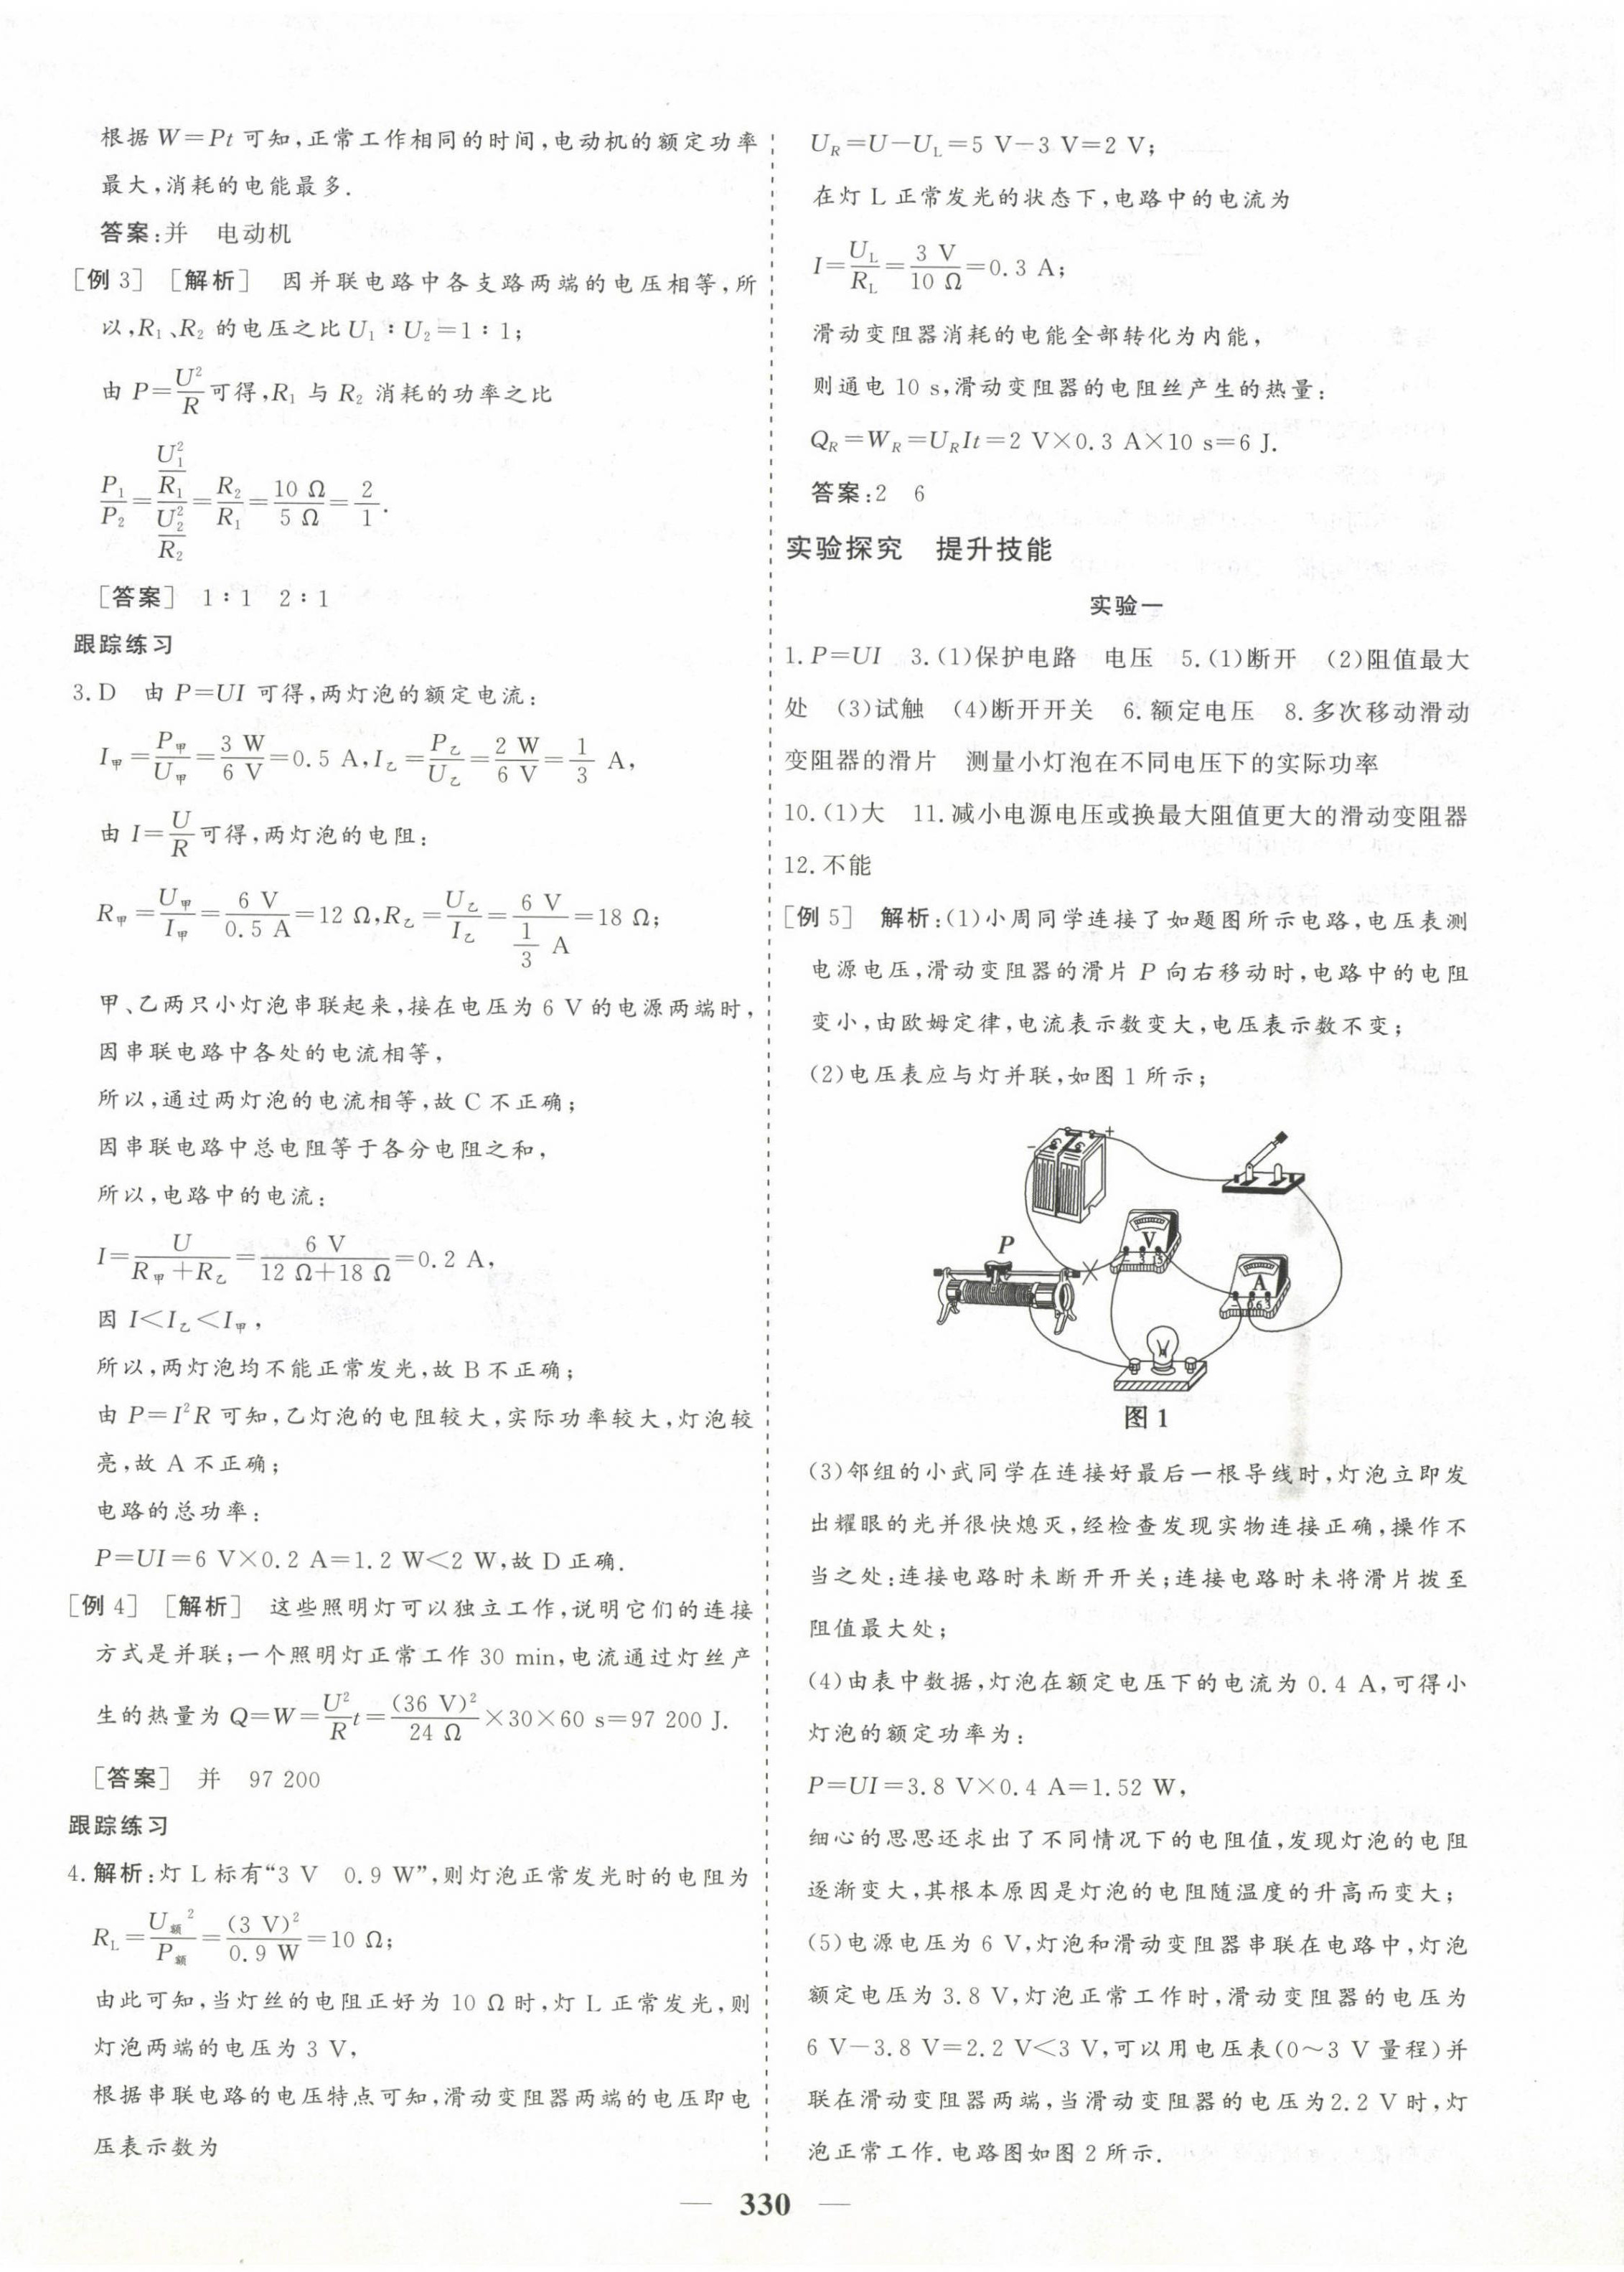 根据 W=Pt 可知,正常工作相同的时间,电动机的额定功率
最大,消耗的电能最多.
答案:并 电动机
[例 3] [解析] 因并联电路中各支路两端的电压相等,所
以,R₁、R₂ 的电压之比 U₁∶U₂=1∶1;
由 P=U²/R 可得,R₁ 与 R₂ 消耗的功率之比
P₁/P₂=(U₁²/R₁)/(U₂²/R₂)=R₂/R₁=10 Ω/5 Ω=2/1.
[答案] 1∶1 2∶1
跟踪练习
3. D 由 P=UI 可得,两灯泡的额定电流:
I甲=P甲/U甲=3 W/6 V=0.5 A,I乙=P乙/U乙=2 W/6 V=1/3 A,
由 I=U/R 可得,两灯泡的电阻:
R甲=U甲/I甲=6 V/0.5 A=12 Ω,R乙=U乙/I乙=6 V/(1/3 A)=18 Ω;
甲、乙两只小灯泡串联起来,接在电压为 6 V 的电源两端时,
因串联电路中各处的电流相等,
所以,通过两灯泡的电流相等,故 C 不正确;
因串联电路中总电阻等于各分电阻之和,
所以,电路中的电流:
I=U/(R甲+R乙)=6 V/(12 Ω+18 Ω)=0.2 A,
因 I<I乙<I甲,
所以,两灯泡均不能正常发光,故 B 不正确;
由 P=I²R 可知,乙灯泡的电阻较大,实际功率较大,灯泡较
亮,故 A 不正确;
电路的总功率:
P=UI=6 V×0.2 A=1.2 W<2 W,故 D 正确.
[例 4] [解析] 这些照明灯可以独立工作,说明它们的连接
方式是并联;一个照明灯正常工作 30 min,电流通过灯丝产
生的热量为 Q=W=U²/R t=(36 V)²/24 Ω×30×60 s=97 200 J.
[答案] 并 97 200
跟踪练习
4. 解析:灯 L 标有“3 V 0.9 W”,则灯泡正常发光时的电阻为
R_L=U额²/P额=(3 V)²/0.9 W=10 Ω;
由此可知,当灯丝的电阻正好为 10 Ω 时,灯 L 正常发光,则
灯泡两端的电压为 3 V,
根据串联电路的电压特点可知,滑动变阻器两端的电压即电
压表示数为
U_R=U-U_L=5 V-3 V=2 V;
在灯 L 正常发光的状态下,电路中的电流为
I=U_L/R_L=3 V/10 Ω=0.3 A;
滑动变阻器消耗的电能全部转化为内能,
则通电 10 s,滑动变阻器的电阻丝产生的热量:
Q_R=W_R=U_R It=2 V×0.3 A×10 s=6 J.
答案:2 6
实验探究 提升技能
实验一
1. P=UI 3. (1)保护电路 电压 5. (1)断开 (2)阻值最大
处 (3)试触 (4)断开开关 6. 额定电压 8. 多次移动滑动
变阻器的滑片 测量小灯泡在不同电压下的实际功率
10. (1)大 11. 减小电源电压或换最大阻值更大的滑动变阻器
12. 不能
[例 5] 解析:(1)小周同学连接了如题图所示电路,电压表测
电源电压,滑动变阻器的滑片 P 向右移动时,电路中的电阻
变小,由欧姆定律,电流表示数变大,电压表示数不变;
(2)电压表应与灯并联,如图 1 所示;
- +
V
- 3 15
P
A
- 0.6 3
图 1
(3)邻组的小武同学在连接好最后一根导线时,灯泡立即发
出耀眼的光并很快熄灭,经检查发现实物连接正确,操作不
当之处:连接电路时未断开开关;连接电路时未将滑片拨至
阻值最大处;
(4)由表中数据,灯泡在额定电压下的电流为 0.4 A,可得小
灯泡的额定功率为:
P=UI=3.8 V×0.4 A=1.52 W,
细心的思思还求出了不同情况下的电阻值,发现灯泡的电阻
逐渐变大,其根本原因是灯泡的电阻随温度的升高而变大;
(5)电源电压为 6 V,灯泡和滑动变阻器串联在电路中,灯泡
额定电压为 3.8 V,灯泡正常工作时,滑动变阻器的电压为
6 V-3.8 V=2.2 V<3 V,可以用电压表(0~3 V 量程)并
联在滑动变阻器两端,当滑动变阻器的电压为2.2 V 时,灯
泡正常工作. 电路图如图 2 所示.
— 330 —